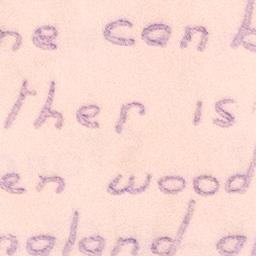 ne can b
ther is
en wood
ngland a